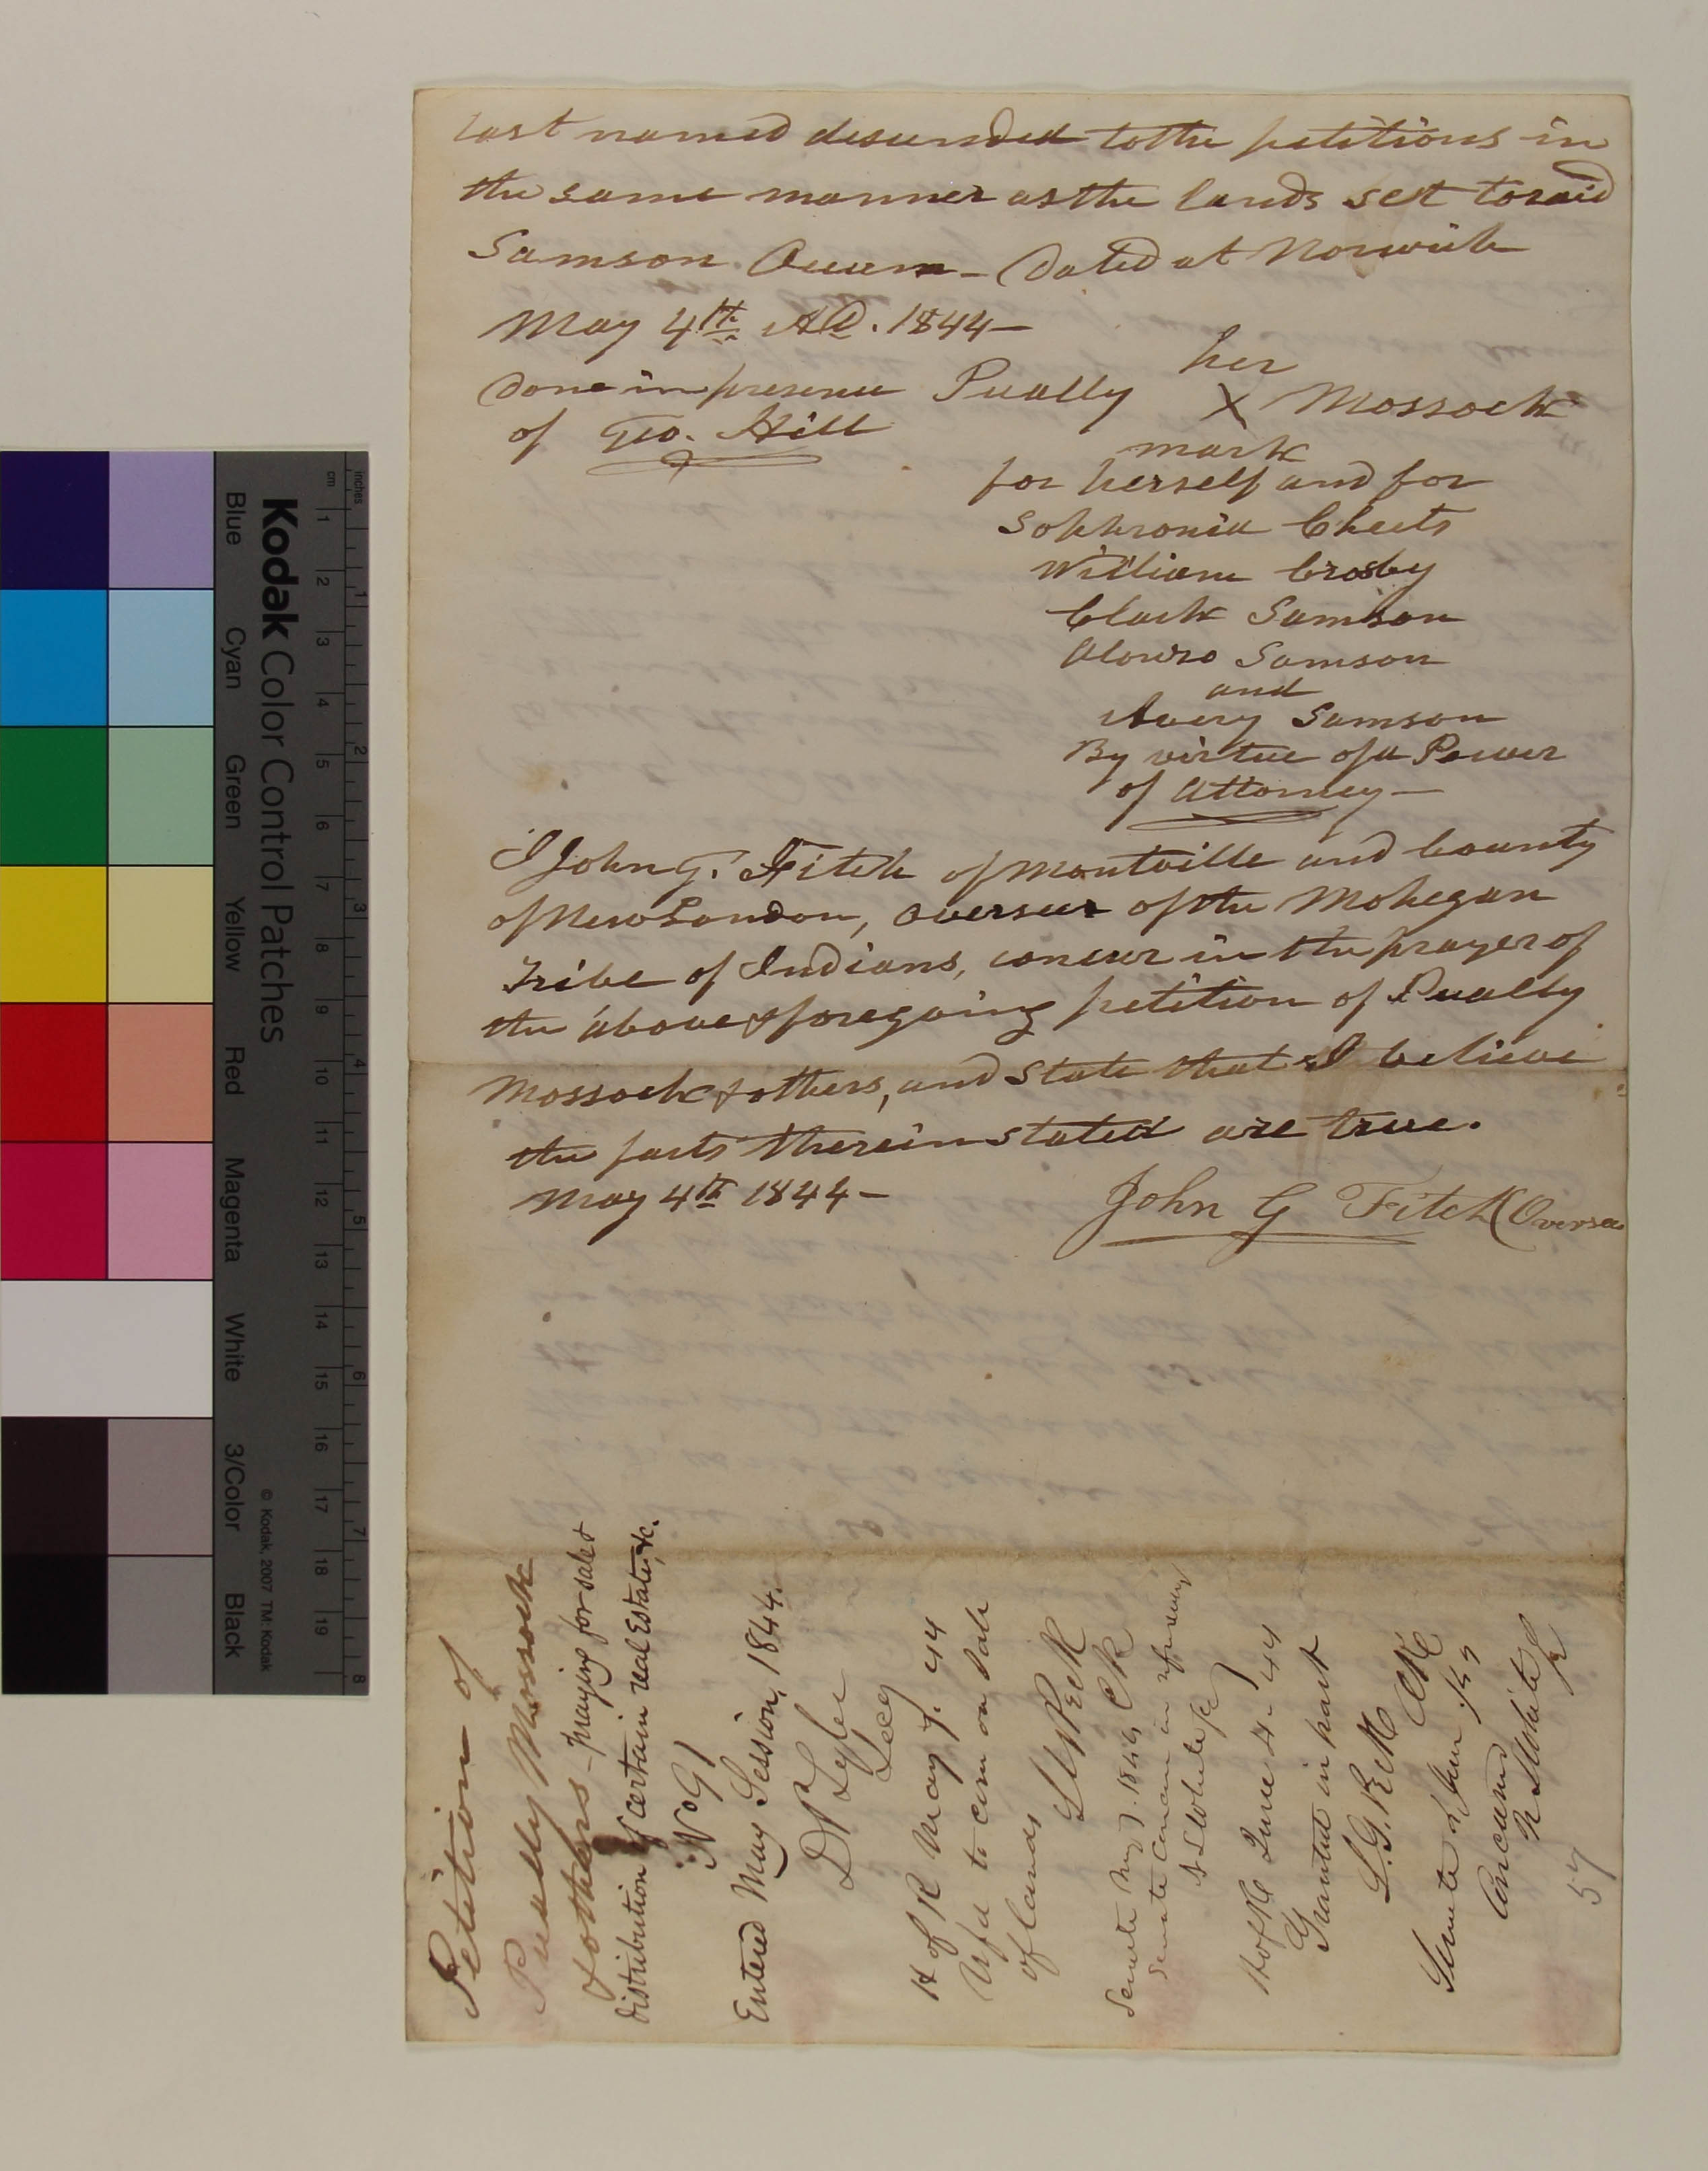 last named desended to the petitions in
the same manner as the lands set to said
Samson Occum — Dated at Norwich
May 4th AD. 1844 —
done in presence
of Geo. Hill
her
Pually X Mossock
mark
for herself and for
Sophronia Cheets
William Crosby
Clark Samson
Alonzo Samson
and
Avery Samson
By virtue of a Power
of Attorney —
I John G. Fitch of Montville and County
of New London, overseer of the Mohegan
Tribe of Indians, concur in the prayer of
the above & foregoing petition of Pually
Mossock & others, and state that I believe
the facts therein stated are true.
May 4th 1844 —
John G Fitch Overseer
Petition of
Pually Mossock
& others — praying for sale &
distribution of certain real Estate, &c.
No 91
Entered May Session, 1844.
D P Tyler
Secy
H of R May 7. 44
Refd to com on sale
of lands
L G Peck
Senate May 7. 1844
Senate Concur in reference
H of R June 4. 44
Granted in part
L. G. Peck Clk
Senate
Concurred
57
Kodak Color Control Patches
Blue
Cyan
Green
Yellow
Red
Magenta
White
3/Color
Black
© Kodak, 2007 TM: Kodak
cm
1 2 3 4 5 6 7 8 9 10 11 12 13 14 15 16 17 18 19
inches
1 2 3 4 5 6 7 8